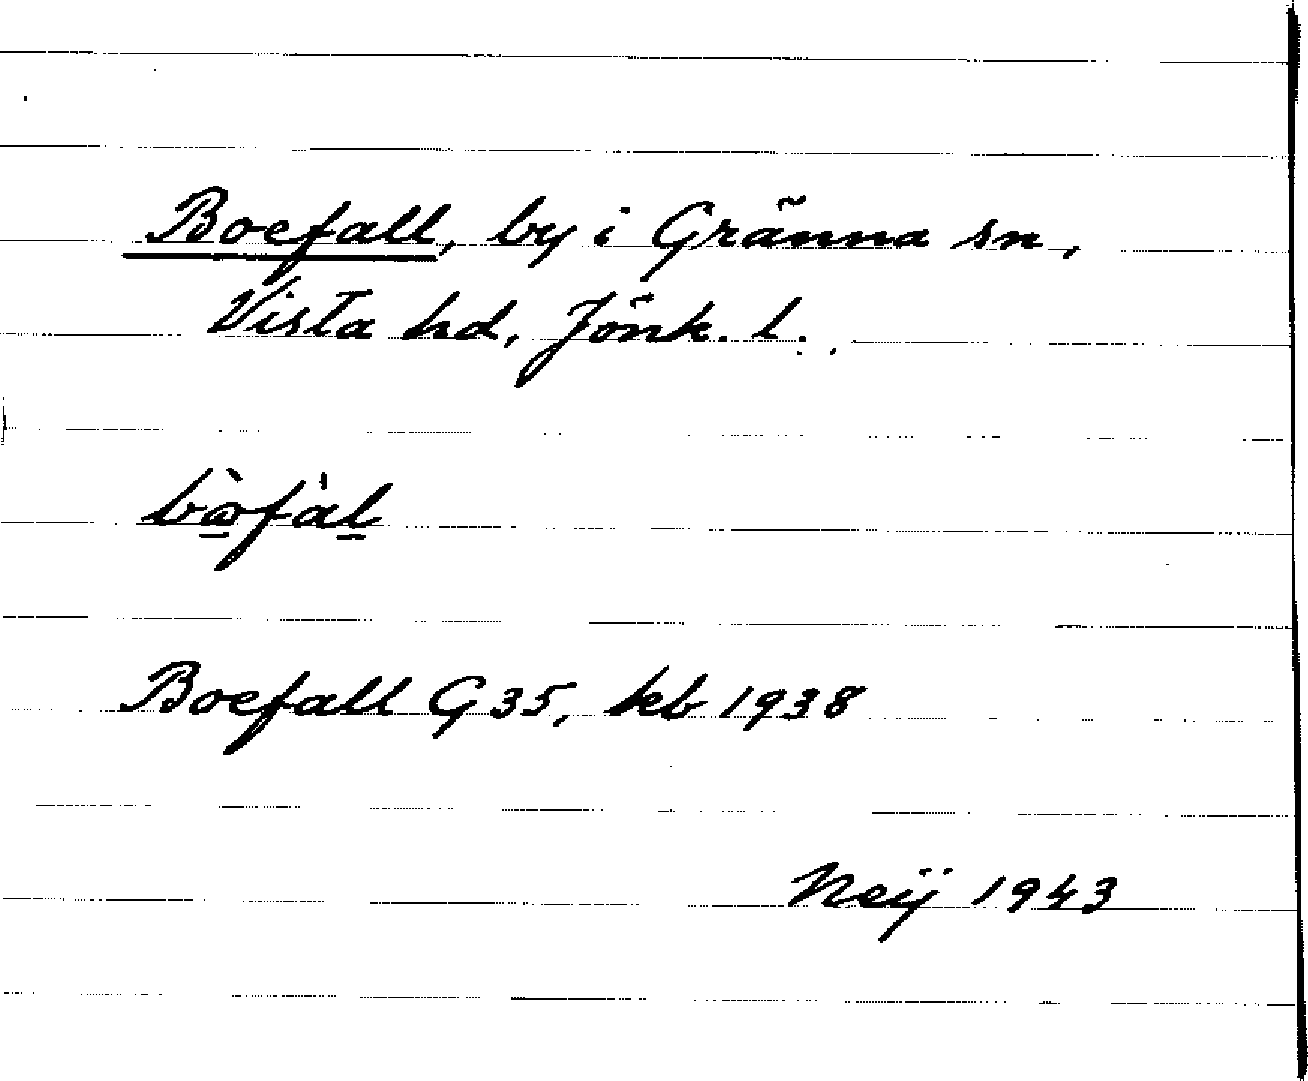 Boefall, by i Gränna sn,
Vista hd, Jönk. l.
Boefall G 35, kb 1938
Neij 1943